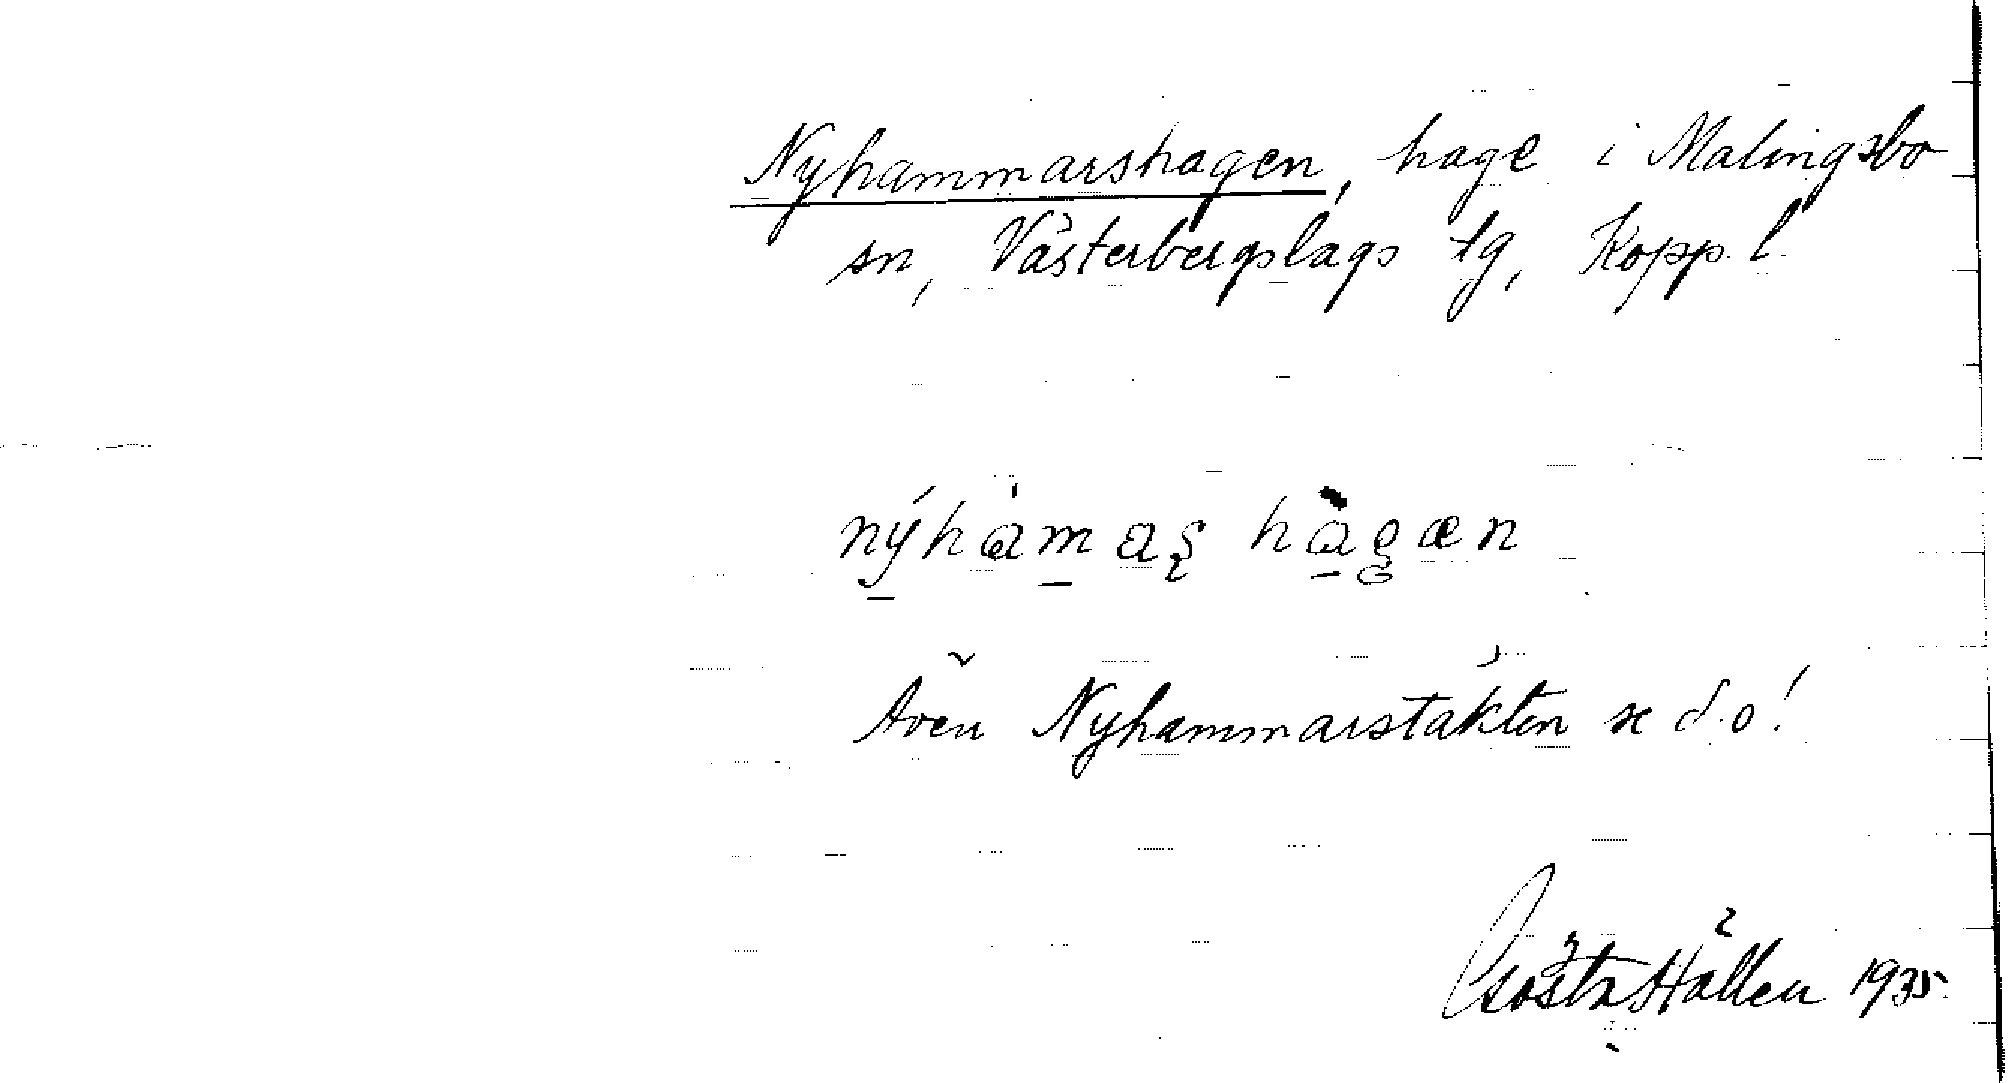 Nyhammarshagen, hage i Malingsbo
sn, Västerbergslags tg, Kopp. l.
nýhàmaʂ hàgæn
Även Nyhammarstäkten se d.o!
Gösta Hållen 1935.